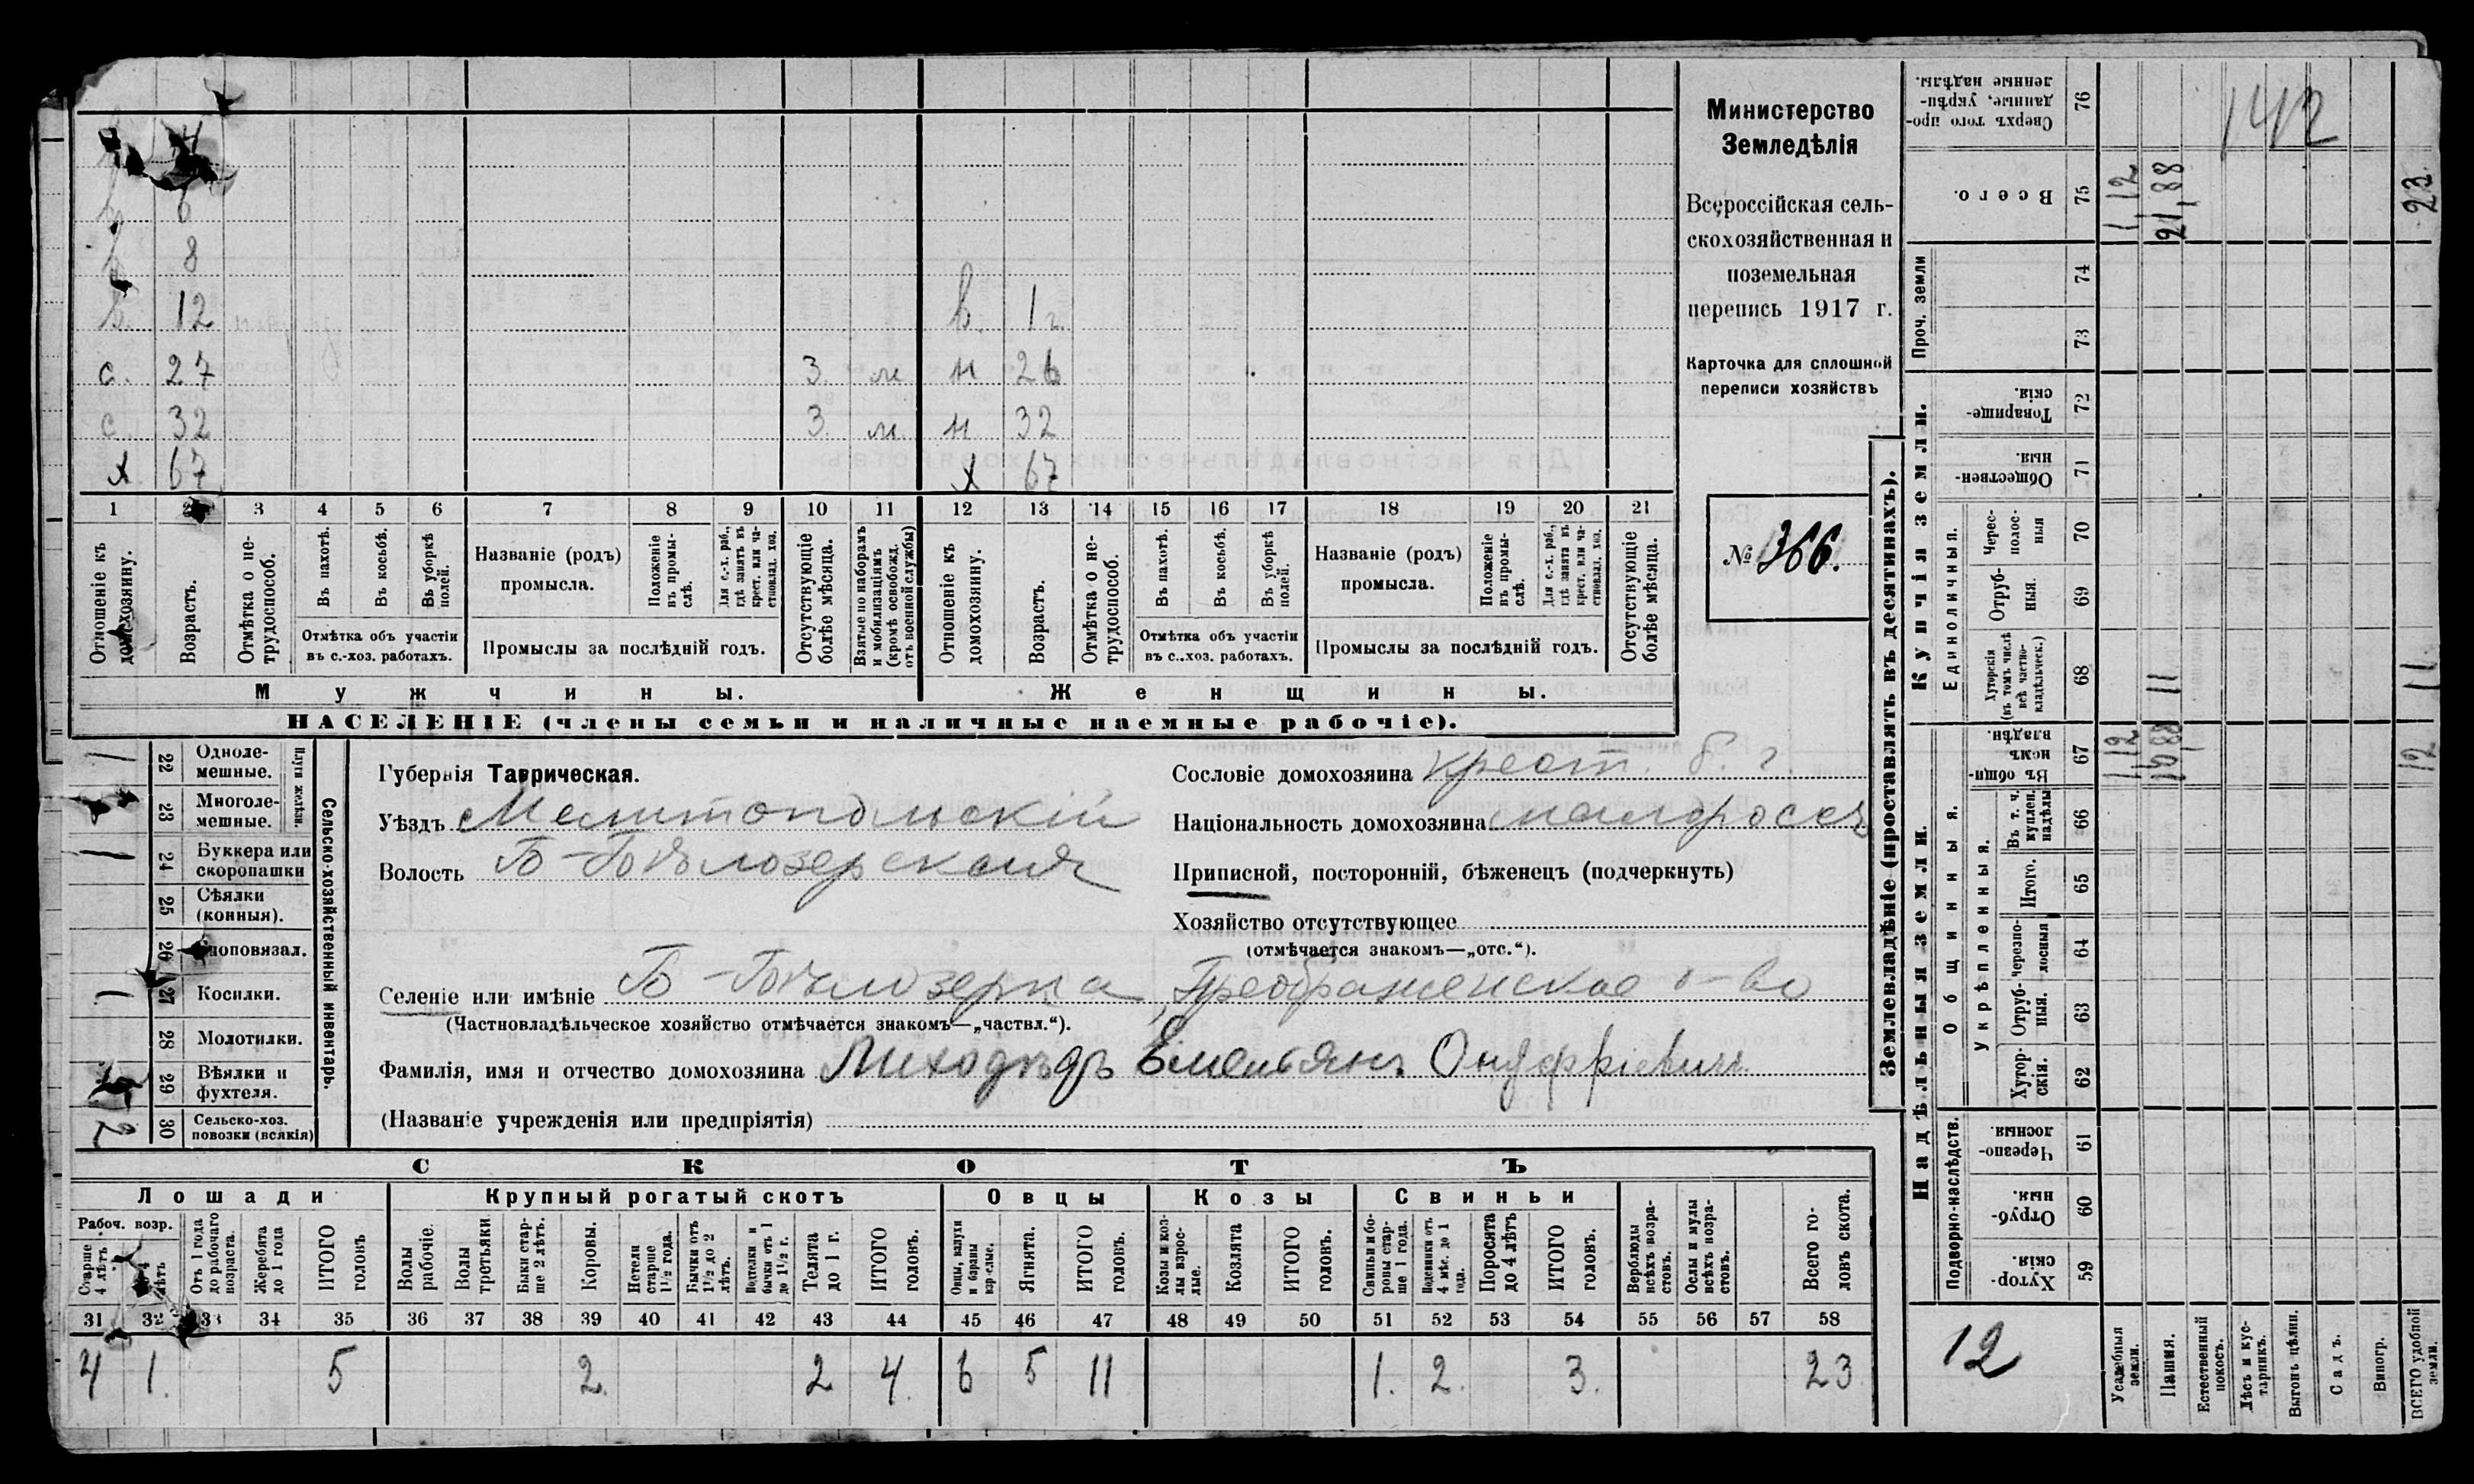 Министерство
Земледѣлія
Всероссійская сель-
скохозяйственная и
поземельная
перепись 1917 г.
Карточка для сплошной
переписи хозяйствъ
№ 366.
6
8
12 в. 1 г.
с. 27 3. м н 26
с 32 3. м. н 32
х 67 х 67
1 2 3 4 5 6 7 8 9 10 11 12 13 14 15 16 17 18 19 20 21
Отношеніе къ домохозяину.
Возрастъ.
Отмѣтка о не-трудоспособ.
Въ пахотѣ.
Въ косьбѣ.
Въ уборкѣ полей.
Отмѣтка объ участіи
въ с.-хоз. работахъ.
Названіе (родъ)
промысла.
Положеніе въ промы-слѣ.
Для с.-х. раб., гдѣ занятъ въ крест. или ча-стновлад. хоз.
Промыслы за послѣдній годъ.
Отсутствующіе болѣе мѣсяца.
Взятые по наборамъ и мобилизаціямъ (кромѣ освобожд. отъ военной службы)
Отношеніе къ домохозяину.
Возрастъ.
Отмѣтка о не-трудоспособ.
Въ пахотѣ.
Въ косьбѣ.
Въ уборкѣ полей.
Отмѣтка объ участіи
въ с..хоз. работахъ.
Названіе (родъ)
промысла.
Положеніе въ промы-слѣ.
Для с.-х. раб., гдѣ занятъ въ крест. или ча-стновлад. хоз.
Промыслы за послѣдній годъ.
Отсутствующіе болѣе мѣсяца.
Мужчины. Женщины.
НАСЕЛЕНІЕ (члены семьи и наличные наемные рабочіе).
Сельско-хозяйственный инвентарь.
Плуги желѣзн.
22 Одноле-мешные.
23 Многоле-мешные.
24 Буккера или скоропашки
25 Сѣялки (конныя).
26 Сноповязал.
27 Косилки.
28 Молотилки.
29 Вѣялки и фухтеля.
30 Сельско-хоз. повозки (всякія) 2
Губернія Таврическая.
Уѣздъ Мелитопольскій
Волость Б-Бѣлозерская
Селеніе или имѣніе Б-Бѣлозерка, Преображенское о-во
(Частновладѣльческое хозяйство отмѣчается знакомъ—„частвл.“).
Фамилія, имя и отчество домохозяина Лиходѣдъ Емельянъ Онуфріевичъ
(Названіе учрежденія или предпріятія)
Сословіе домохозяина крест. б. г.
Національность домохозяина малоросъ
Приписной, посторонній, бѣженецъ (подчеркнуть)
Хозяйство отсутствующее
(отмѣчается знакомъ—„отс.“).
СКОТЪ
Лошади Крупный рогатый скотъ Овцы Козы Свиньи
Рабоч. возр.
Старше 4 лѣтъ
До 4 лѣтъ
Отъ 1 года до рабочаго возраста.
Жеребята до 1 года
ИТОГО головъ
Волы рабочіе.
Волы третьяки
Быки стар-ше 2 лѣтъ.
Коровы.
Нетели старше 1½ года.
Бычки отъ 1½ до 2 лѣтъ.
Подтелки и бычки отъ 1 до 1½ г.
Телята до 1 г.
ИТОГО головъ.
Овцы, валухи и бараны взрослые.
Ягнята.
ИТОГО головъ.
Козы и коз-лы взрос-лые.
Козлята
ИТОГО головъ.
Свиньи и бо-ровы стар-ше 1 года.
Подсвинки отъ 4 мѣс. до 1 года.
Поросята до 4 лѣтъ
ИТОГО головъ.
Верблюды всѣхъ возра-стовъ.
Ослы и мулы всѣхъ возра-стовъ.
Всего го-ловъ скота.
31 32 33 34 35 36 37 38 39 40 41 42 43 44 45 46 47 48 49 50 51 52 53 54 55 56 57 58
4 1. 5 2. 2 4. 6 5 11 1. 2. 3. 23
Землевладѣніе (проставлять въ десятинахъ).
Надѣльныя земли. Купчія земли.
Подворно-наслѣдств.
Общинныя.
Укрѣпленныя.
Единоличныя.
Проч. земли
Хутор-скія. 59
Отруб-ныя. 60
Черезпо-лосныя. 61
Хутор-скія. 62
Отруб-ныя. 63
Черезпо-лосныя 64
Итого. 65
Въ т. ч. куплен. надѣлы 66
Въ общи-номъ владѣн. 67
Хуторскія (въ томъ числѣ всѣ частно-владѣльческ.) 68
Отруб-ныя. 69
Черес-полос-ныя 70
Обществен-ныя. 71
Товарище-скія. 72
73
74
Всего. 75
Сверхъ того про-данные, укрѣп-ленные надѣлы. 76
12
Усадебныя земли. 1,12 1,12
Пашня. 10,88 11 21,88
Естественный покосъ.
Лѣсъ и кус-тарникъ.
Выгонъ цѣлин.
Садъ.
Виногр.
ВСЕГО удобной земли. 12 11 23.
142